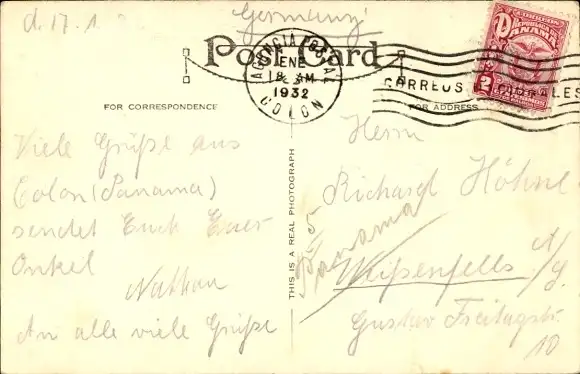 d. 17. 1.
Germany
Post Card
AGENCIA POSTAL
ENE
8 AM
1932
COLON
CORREOS
REPUBLICA DE
PANAMA
2
FOR CORRESPONDENCE
FOR ADDRESS
Viele Grüße aus
Colon (Panama)
sendet Euch Euer
Onkel
Nathan
An alle viele Grüße
THIS IS A REAL PHOTOGRAPH
Herrn
Richard Höhne
Panama
Weißenfels a/S.
Gustav Freitagstr.
10